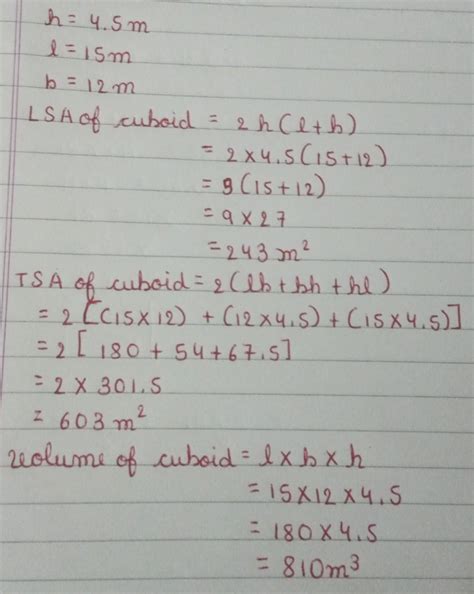 h = 4.5m
l = 15m
b = 12m
LSA of cuboid = 2h(l+b)
= 2×4.5(15+12)
= 9(15+12)
= 9×27
= 243 m²
TSA of cuboid = 2(lb+bh+hl)
= 2[(15×12) + (12×4.5) + (15×4.5)]
= 2[180+54+67.5]
= 2 × 301.5
= 603 m²
volume of cuboid = l×b×h
= 15×12×4.5
= 180×4.5
= 810m³